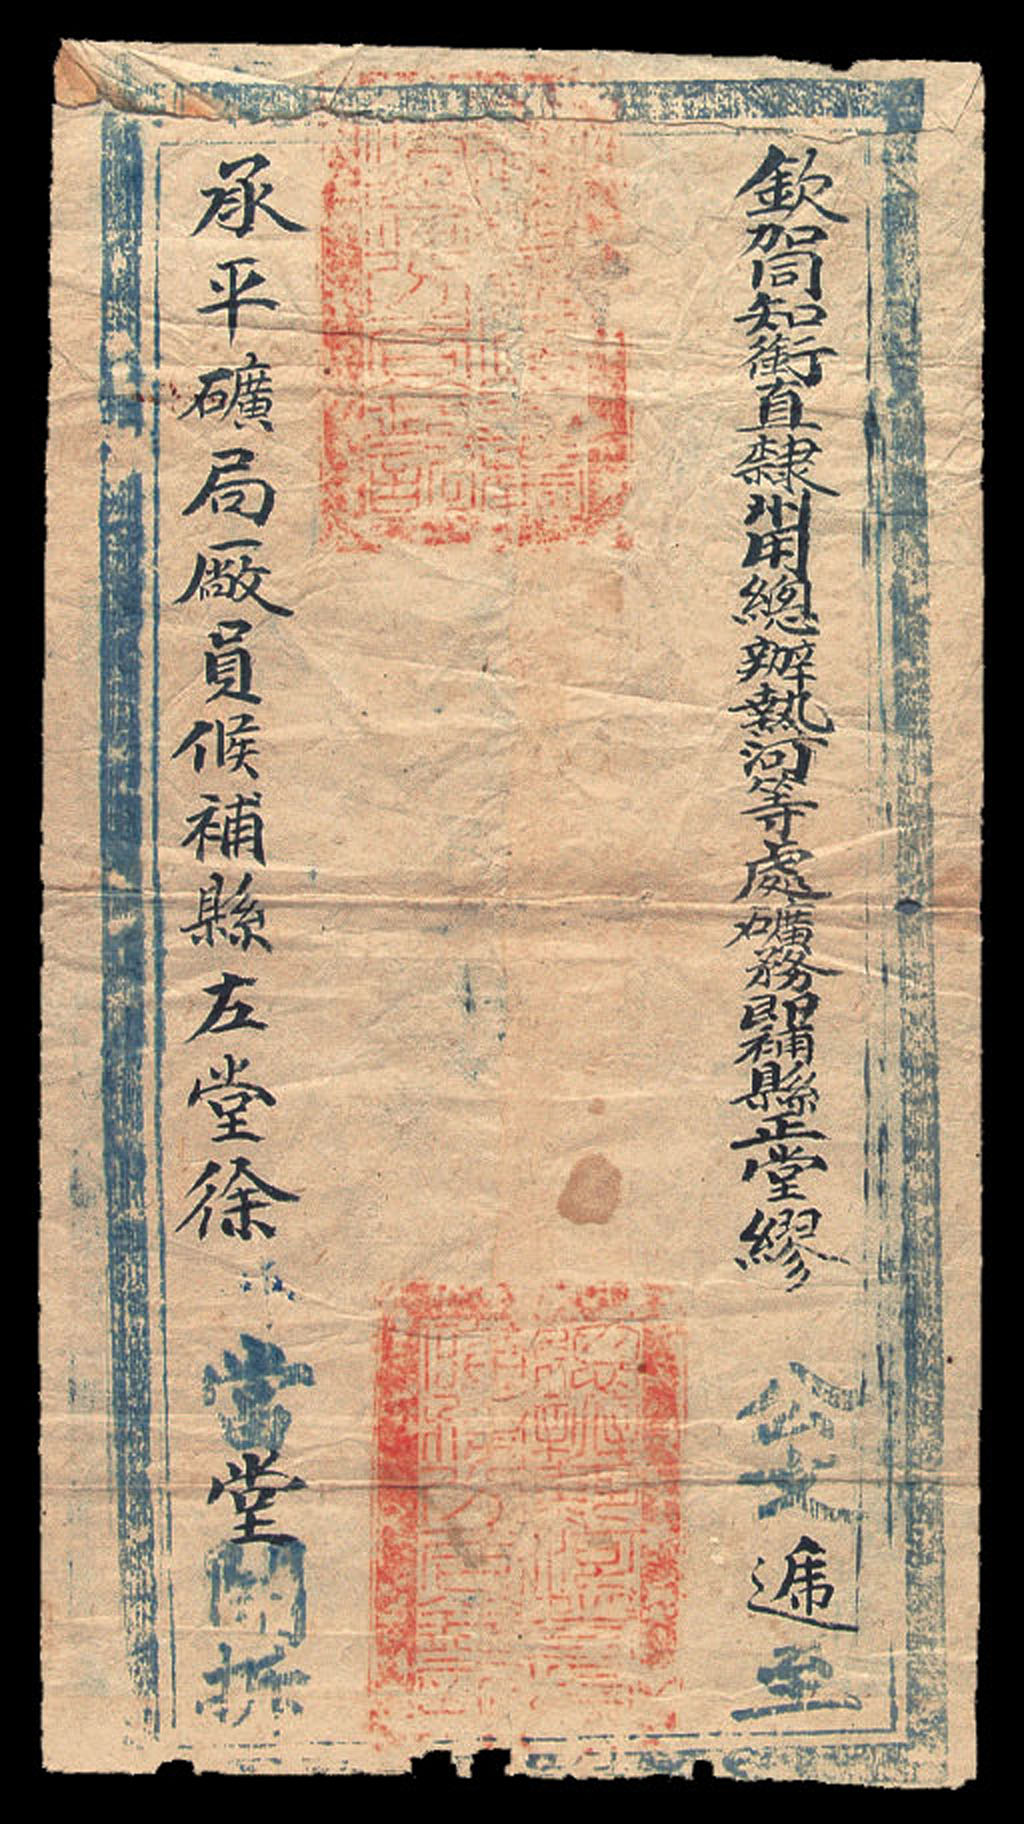 欽加同知銜直隸州用總辦熱河等處礦務即補縣正堂繆公文遞至
承平礦局廠員候補縣左堂徐當堂開拆